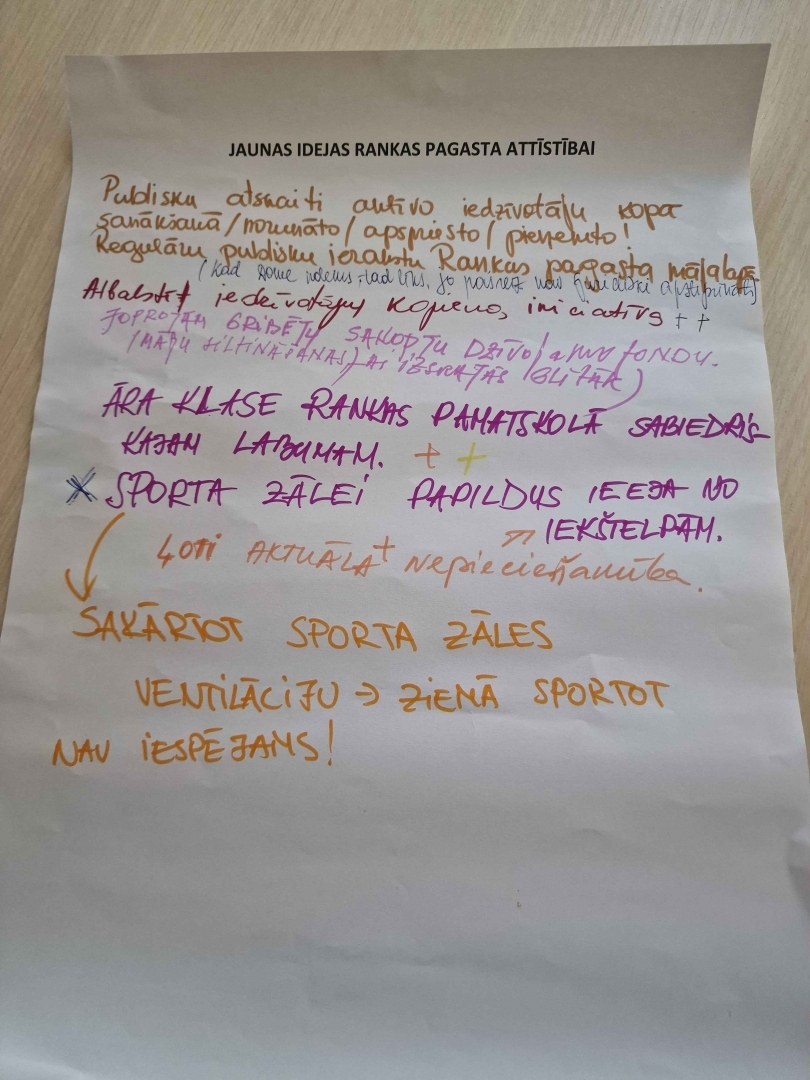 JAUNAS IDEJAS RANKAS PAGASTA ATTĪSTĪBAI
Publisku atskaiti aktīvo iedzīvotāju kopā
sanākšanā/norunāto/apspriesto/pieņemto!
Regulāru publisku ierakstu Rankas pagasta mājaslapā
(kad dome, jo nav
Atbalstīt iedzīvotāju kopienas iniciatīvas ++
JOPROJĀM GRIBĒTU SAKOPTU DZĪVOJAMO FONDU.
(MĀJU SILTINĀŠANAS)
ĀRA KLASE RANKAS PAMATSKOLĀ SABIEDRIS-
KAJAM LABUMAM. + +
SPORTA ZĀLEI PAPILDUS IEEJA NO
IEKŠTELPĀM.
ĻOTI AKTUĀLA + nepieciešamība.
SAKĀRTOT SPORTA ZĀLES
VENTILĀCIJU → ZIEMĀ SPORTOT
NAV IESPĒJAMS!